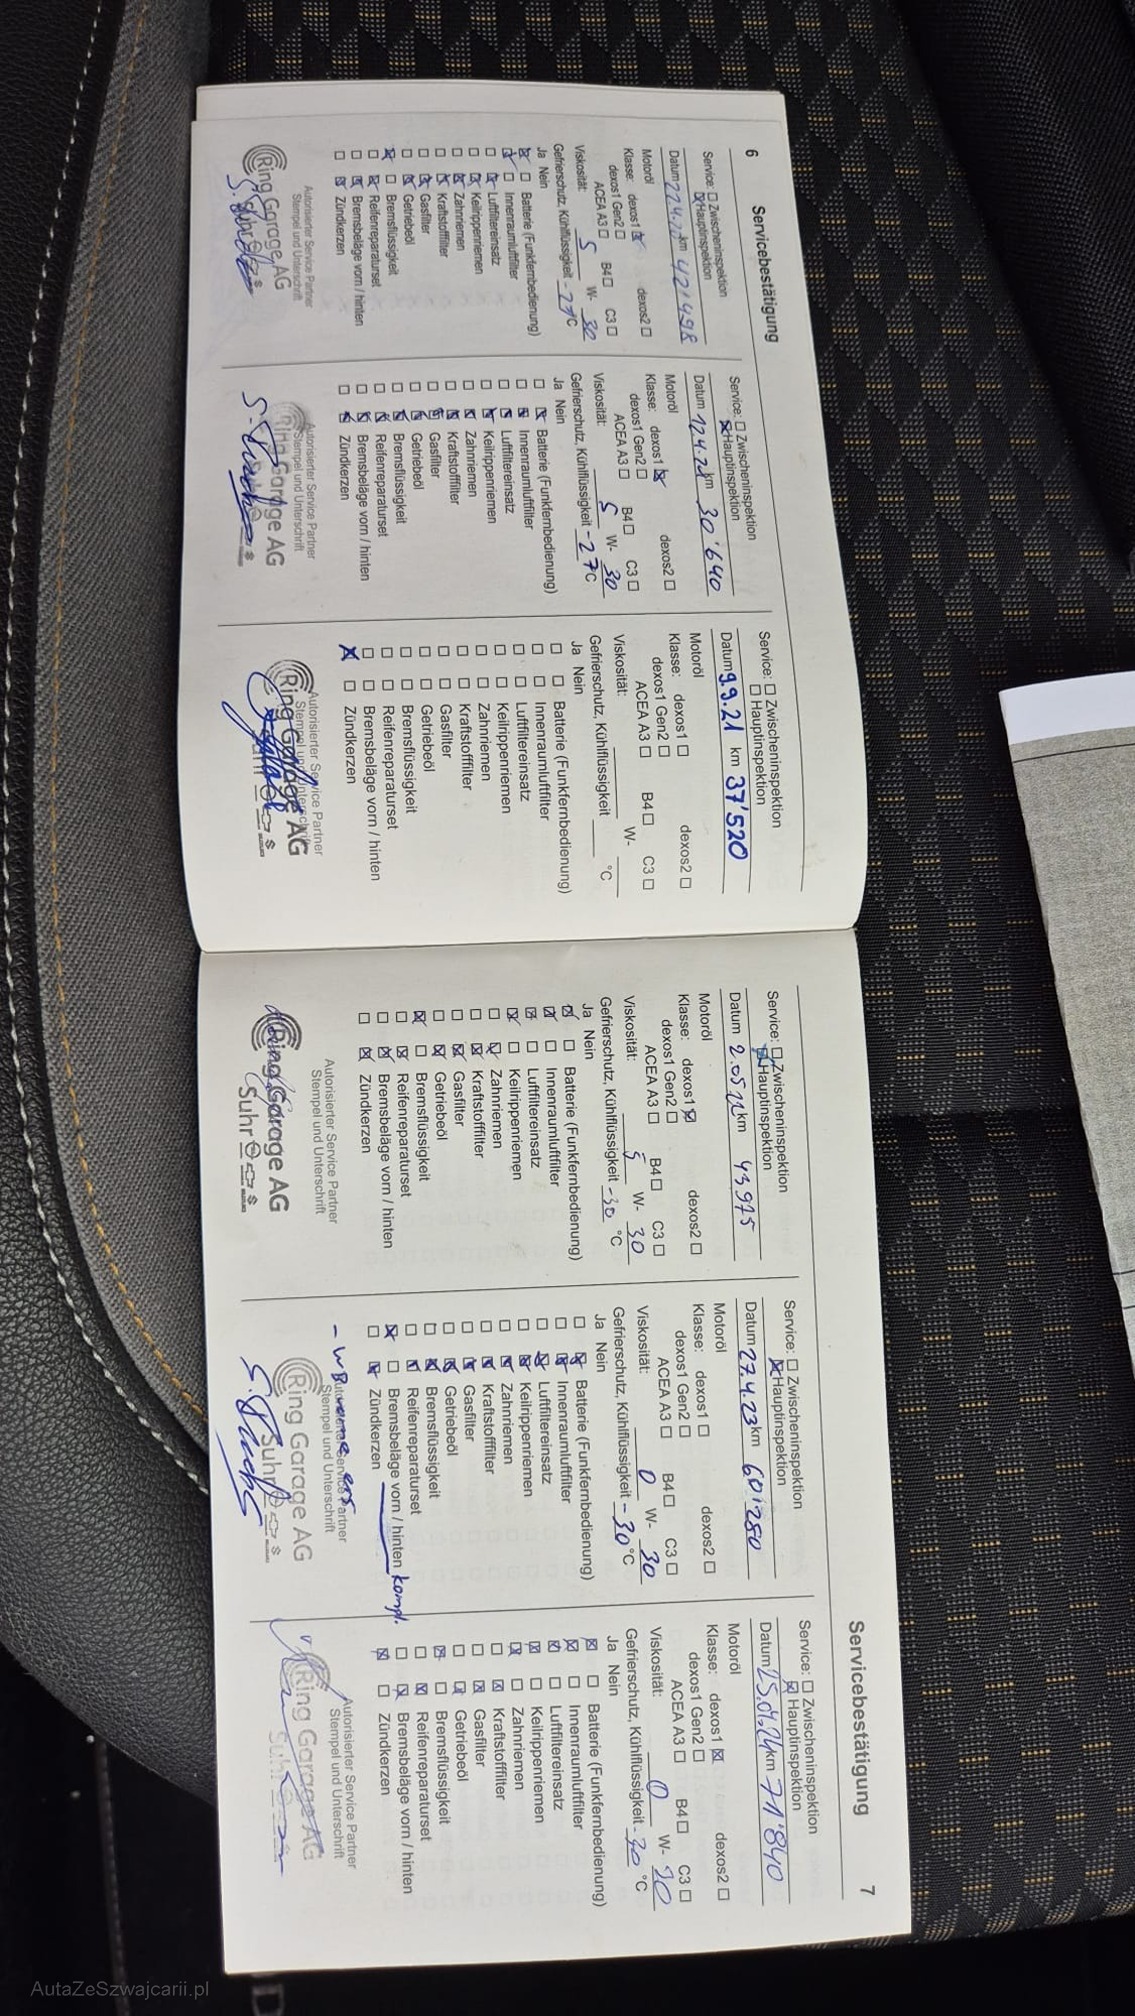 6
Servicebestätigung
Service: Zwischeninspektion
Hauptinspektion
Datum km 42'498
Motoröl
Klasse: dexos1 dexos2
dexos1 Gen2
ACEA A3 B4 C3
Viskosität: 5 W- 30
Gefrierschutz, Kühlflüssigkeit -27°C
Ja Nein
Batterie (Funkfernbedienung)
Innenraumluftfilter
Luftfiltereinsatz
Keilrippenriemen
Zahnriemen
Kraftstofffilter
Gasfilter
Getriebeöl
Bremsflüssigkeit
Reifenreparaturset
Bremsbeläge vorn / hinten
Zündkerzen
Autorisierter Service Partner
Stempel und Unterschrift
Ring Garage AG
Service: Zwischeninspektion
Hauptinspektion
Datum 12.4.21 km 30'640
Motoröl
Klasse: dexos1 dexos2
dexos1 Gen2
ACEA A3 B4 C3
Viskosität: 5 W- 30
Gefrierschutz, Kühlflüssigkeit -27°C
Ja Nein
Batterie (Funkfernbedienung)
Innenraumluftfilter
Luftfiltereinsatz
Keilrippenriemen
Zahnriemen
Kraftstofffilter
Gasfilter
Getriebeöl
Bremsflüssigkeit
Reifenreparaturset
Bremsbeläge vorn / hinten
Zündkerzen
Autorisierter Service Partner
Stempel und Unterschrift
Ring Garage AG
Service: Zwischeninspektion
Hauptinspektion
Datum 9.9.21 km 37'520
Motoröl
Klasse: dexos1 dexos2
dexos1 Gen2
ACEA A3 B4 C3
Viskosität: W-
Gefrierschutz, Kühlflüssigkeit °C
Ja Nein
Batterie (Funkfernbedienung)
Innenraumluftfilter
Luftfiltereinsatz
Keilrippenriemen
Zahnriemen
Kraftstofffilter
Gasfilter
Getriebeöl
Bremsflüssigkeit
Reifenreparaturset
Bremsbeläge vorn / hinten
Zündkerzen
Autorisierter Service Partner
Stempel und Unterschrift
Ring Garage AG
Servicebestätigung
7
Service: Zwischeninspektion
Hauptinspektion
Datum 2.05.22 km 43975
Motoröl
Klasse: dexos1 dexos2
dexos1 Gen2
ACEA A3 B4 C3
Viskosität: 5 W- 30
Gefrierschutz, Kühlflüssigkeit -30 °C
Ja Nein
Batterie (Funkfernbedienung)
Innenraumluftfilter
Luftfiltereinsatz
Keilrippenriemen
Zahnriemen
Kraftstofffilter
Gasfilter
Getriebeöl
Bremsflüssigkeit
Reifenreparaturset
Bremsbeläge vorn / hinten
Zündkerzen
Autorisierter Service Partner
Stempel und Unterschrift
Ring Garage AG
Suhr
Service: Zwischeninspektion
Hauptinspektion
Datum 27.4.23 km 60'280
Motoröl
Klasse: dexos1 dexos2
dexos1 Gen2
ACEA A3 B4 C3
Viskosität: 0 W- 30
Gefrierschutz, Kühlflüssigkeit -30°C
Ja Nein
Batterie (Funkfernbedienung)
Innenraumluftfilter
Luftfiltereinsatz
Keilrippenriemen
Zahnriemen
Kraftstofffilter
Gasfilter
Getriebeöl
Bremsflüssigkeit
Reifenreparaturset
Bremsbeläge vorn / hinten kompl.
Zündkerzen
Autorisierter Service Partner
Stempel und Unterschrift
Ring Garage AG
Suhr
Service: Zwischeninspektion
Hauptinspektion
Datum 25.01.24 km 71'840
Motoröl
Klasse: dexos1 dexos2
dexos1 Gen2
ACEA A3 B4 C3
Viskosität: 0 W- 20
Gefrierschutz, Kühlflüssigkeit -30 °C
Ja Nein
Batterie (Funkfernbedienung)
Innenraumluftfilter
Luftfiltereinsatz
Keilrippenriemen
Zahnriemen
Kraftstofffilter
Gasfilter
Getriebeöl
Bremsflüssigkeit
Reifenreparaturset
Bremsbeläge vorn / hinten
Zündkerzen
Autorisierter Service Partner
Stempel und Unterschrift
Ring Garage AG
Suhr
AutaZeSzwajcarii.pl